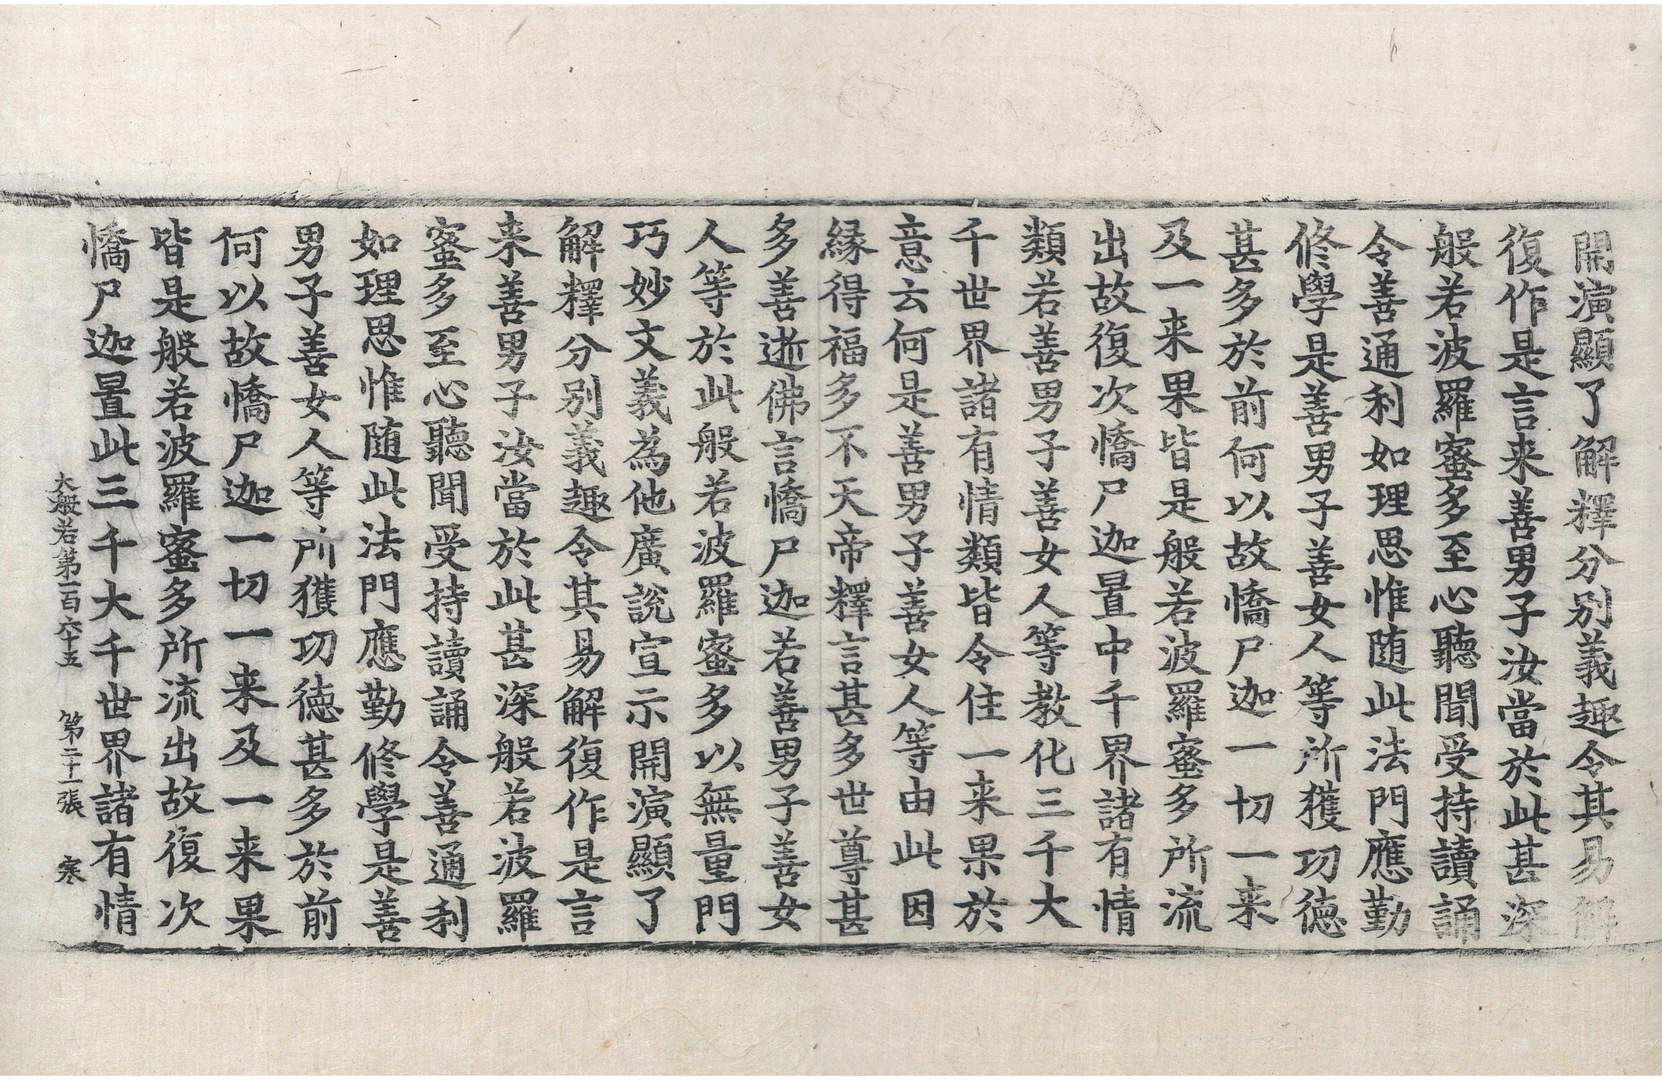 開演顯了解釋分別義趣令其易解
復作是言来善男子汝當於此甚深
般若波羅蜜多至心聽聞受持讀誦
令善通利如理思惟随此法門應勤
修學是善男子善女人等所獲功德
甚多於前何以故憍尸迦一切一来
及一来果皆是般若波羅蜜多所流
出故復次憍尸迦置中千界諸有情
類若善男子善女人等教化三千大
千世界諸有情類皆令住一来果於
意云何是善男子善女人等由此因
縁得福多不天帝釋言甚多世尊甚
多善逝佛言憍尸迦若善男子善女
人等於此般若波羅蜜多以無量門
巧妙文義為他廣說宣示開演顯了
解釋分別義趣令其易解復作是言
来善男子汝當於此甚深般若波羅
蜜多至心聽聞受持讀誦令善通利
如理思惟随此法門應勤修學是善
男子善女人等所獲功德甚多於前
何以故憍尸迦一切一来及一来果
皆是般若波羅蜜多所流出故復次
憍尸迦置此三千大千世界諸有情
大般若第一百六十五 第二十一張 寒